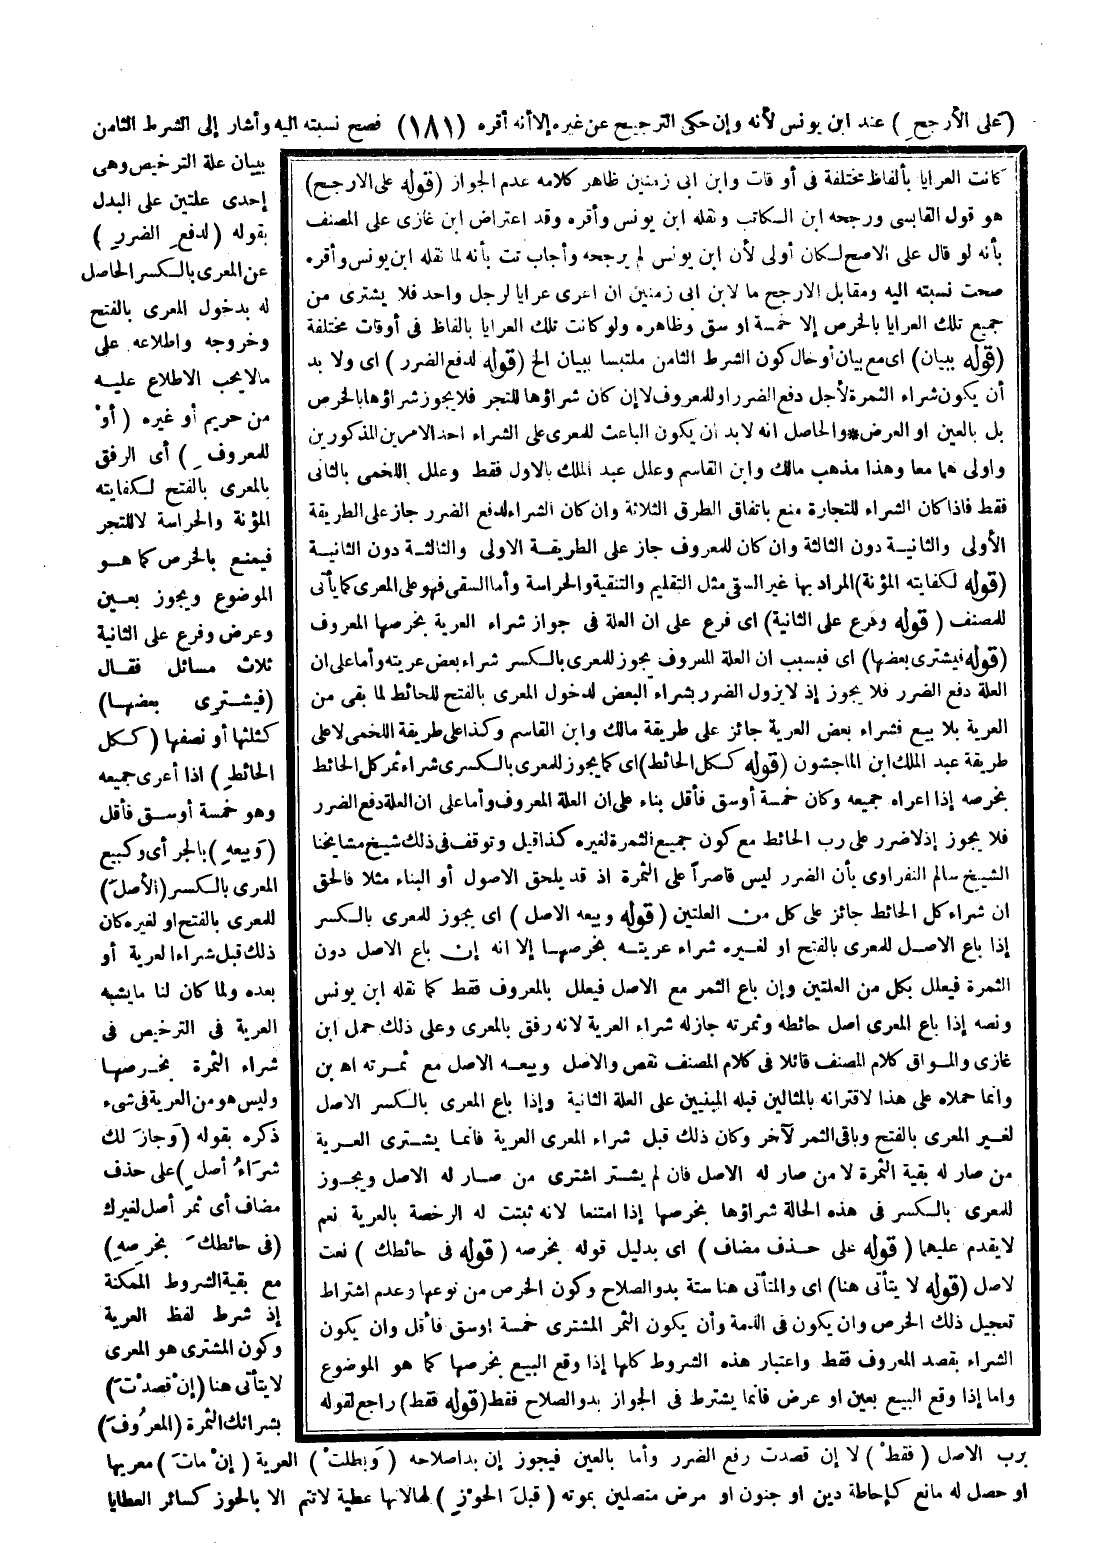 (عَلَى الأرجحِ) عند ابن يونس لأنه وإن حكى الترجيح عن غيره إلا أنه أقره (١٨١) فصح نسبته اليه وأشار إلى الشرط الثامن
بييان علة الترخيص وهى
إحدى علتين على البدل
بقوله (لدفعِ الضررِ)
عن المعرى بالكسر الحاصل
له بدخول المعرى بالفتح
وخروجه واطلاعه على
مالا يحب الاطلاع عليه
من حريم أو غيره (أوْ
للمعروفِ) أى الرفق
بالمعرى بالفتح لكفايته
المؤنة والحراسة لاللتجر
فيمنع بالخرص كما هو
الموضوع ويجوز بعين
وعرض وفرع على الثانية
ثلاث مسائل فقال
(فيشترى بعضها)
كثلثها أو نصفها (ككل
الحائطِ) اذا أعرى جميعه
وهو خمسة أوسق فأقل
(وَبيعهِ) بالجر أى وكبيع
المعرى بالكسر (الأصلَ)
للمعرى بالفتح او لغيره كان
ذلك قبل شراء العرية أو
بعده ولما كان لنا مايشبه
العرية فى الترخيص فى
شراء الثمرة بخرصها
وليس هو من العرية فى شىء
ذكره بقوله (وَجازَ لك
شرَاءُ أصلٍ) على حذف
مضاف أى ثمر أصل لغيرك
(فى حائطكَ بخرصِهِ)
مع بقية الشروط الممكنة
إذ شرط لفظ العرية
وكون المشترى هو المعرى
لايتأتى هنا (إنْ قصدْتَ)
بشرائك الثمرة (المعرُوفَ)
كانت العرايا بألفاظ مختلفة فى أوقات وابن ابى زمنين ظاهر كلامه عدم الجواز (قوله على الارجح)
هو قول القابسى ورجحه ابن الكاتب ونقله ابن يونس وأقره وقد اعتراض ابن غازى على المصنف
بأنه لو قال على الاصح لكان أولى لأن ابن يونس لم يرجحه وأجاب تت بأنه لما نقله ابن يونس وأقره
صحت نسبته اليه ومقابل الارجح ما لابن ابى زمنين ان اعرى عرايا لرجل واحد فلا يشترى من
جميع تلك العرايا بالخرص إلا خمسة اوسق وظاهره ولو كانت تلك العرايا بالفاظ فى أوقات مختلفة
(قوله ببيان) اى مع بيان أو حال كون الشرط الثامن ملتبسا ببيان الخ (قوله لدفع الضرر) اى ولا بد
أن يكون شراء الثمرة لأجل دفع الضرر او للمعروف لا إن كان شراؤها للتجر فلا يجوز شراؤها بالخرص
بل بالعين او العرض*والحاصل انه لابد أن يكون الباعث للمعرى على الشراء احد الامرين المذكورين
واولى هما معا وهذا مذهب مالك وابن القاسم وعلل عبد الملك بالاول فقط وعلل اللخمى بالثانى
فقط فاذا كان الشراء للتجارة منع باتفاق الطرق الثلاثة وان كان الشراء لدفع الضرر جاز على الطريقة
الأولى والثانية دون الثالثة وان كان للمعروف جاز على الطريقة الاولى والثالثة دون الثانية
(قوله لكفايته المؤنة) المراد بها غير السقى مثل التقليم والتنقية والحراسة وأما السقى فهو على المعرى كما يأتى
للمصنف (قوله وفرع على الثانية) اى فرع على ان العلة فى جواز شراء العرية بخرصها المعروف
(قوله فيشترى بعضها) اى فبسبب ان العلة المعروف يجوز للمعرى بالكسر شراء بعض عريته وأما على ان
العلة دفع الضرر فلا يجوز إذ لايزول الضرر بشراء البعض لدخول المعرى بالفتح للحائط لما بقى من
العرية بلا بيع فشراء بعض العرية جائز على طريقة مالك وابن القاسم وكذا على طريقة اللخمى لا على
طريقة عبد الملك ابن الماجشون (قوله ككل الحائط) اى كما يجوز للمعرى بالكسرى شراء ثمر كل الحائط
بخرصه إذا اعراه جميعه وكان خمسة أوسق فأقل بناء على ان العلة المعروف وأما على ان العلة دفع الضرر
فلا يجوز إذ لاضرر على رب الحائط مع كون جميع الثمرة لغيره كذا قيل وتوقف فى ذلك شيخ مشايخنا
الشيخ سالم النفراوى بأن الضرر ليس قاصراً على الثمرة اذ قد يلحق الاصول أو البناء مثلا فالحق
ان شراء كل الحائط جائز على كل من العلتين (قوله وبيعه الاصل) اى يجوز للمعرى بالكسر
إذا باع الاصل للمعرى بالفتح او لغيره شراء عريته بخرصها إلا انه إن باع الاصل دون
الثمرة فيعلل بكل من العلتين وإن باع الثمر مع الاصل فيعلل بالمعروف فقط كما نقله ابن يونس
ونصه إذا باع المعرى اصل حائطه وثمرته جازله شراء العرية لانه رفق بالمعرى وعلى ذلك حمل ابن
غازى والمواق كلام المصنف قائلا فى كلام المصنف نقص والاصل وبيعه الاصل مع ثمرته اه بن
وانما حملاه على هذا لاقترانه بالمثالين قبله المبنيين على العلة الثانية وإذا باع المعرى بالكسر الاصل
لغير المعرى بالفتح وباقى الثمر لآخر وكان ذلك قبل شراء المعرى العرية فانما يشترى العرية
من صار له بقية الثمرة لا من صار له الاصل فان لم يشتر اشترى من صار له الاصل ويجوز
للمعرى بالكسر فى هذه الحالة شراؤها بخرصها إذا امتنعا لانه ثبتت له الرخصة بالعرية نعم
لايقدم عليهما (قوله على حذف مضاف) اى بدليل قوله بخرصه (قوله فى حائطك) نعت
لاصل (قوله لا يتأتى هنا) اى والمتأتى هنا ستة بدو الصلاح وكون الخرص من نوعها وعدم اشتراط
تعجيل ذلك الخرص وان يكون فى الذمة وأن يكون الثمر المشترى خمسة اوسق فأقل وان يكون
الشراء بقصد المعروف فقط واعتبار هذه الشروط كلها إذا وقع البيع بخرصها كما هو الموضوع
واما إذا وقع البيع بعين او عرض فانما يشترط فى الجواز بدو الصلاح فقط (قوله فقط) راجع لقوله
برب الاصل (فقطْ) لا إن قصدت رفع الضرر وأما بالعين فيجوز إن بداصلاحه (وَبطلتْ) العرية (إنْ ماتَ) معريها
او حصل له مانع كإحاطة دين او جنون او مرض متصلين بموته (قبلَ الحوْزِ) لها لانها عطية لاتتم الا بالحوز كسائر العطايا